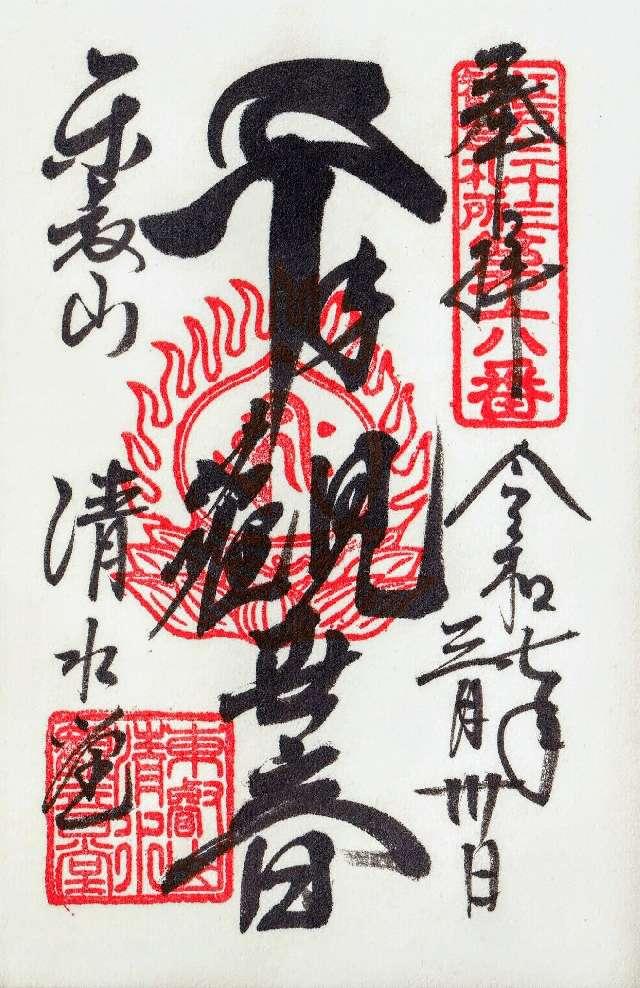 奉拝
江戸三十三
札所
六番
令和七年
三月卅日
千手觀世音
東叡山
清水堂
東叡山
清水
觀音堂